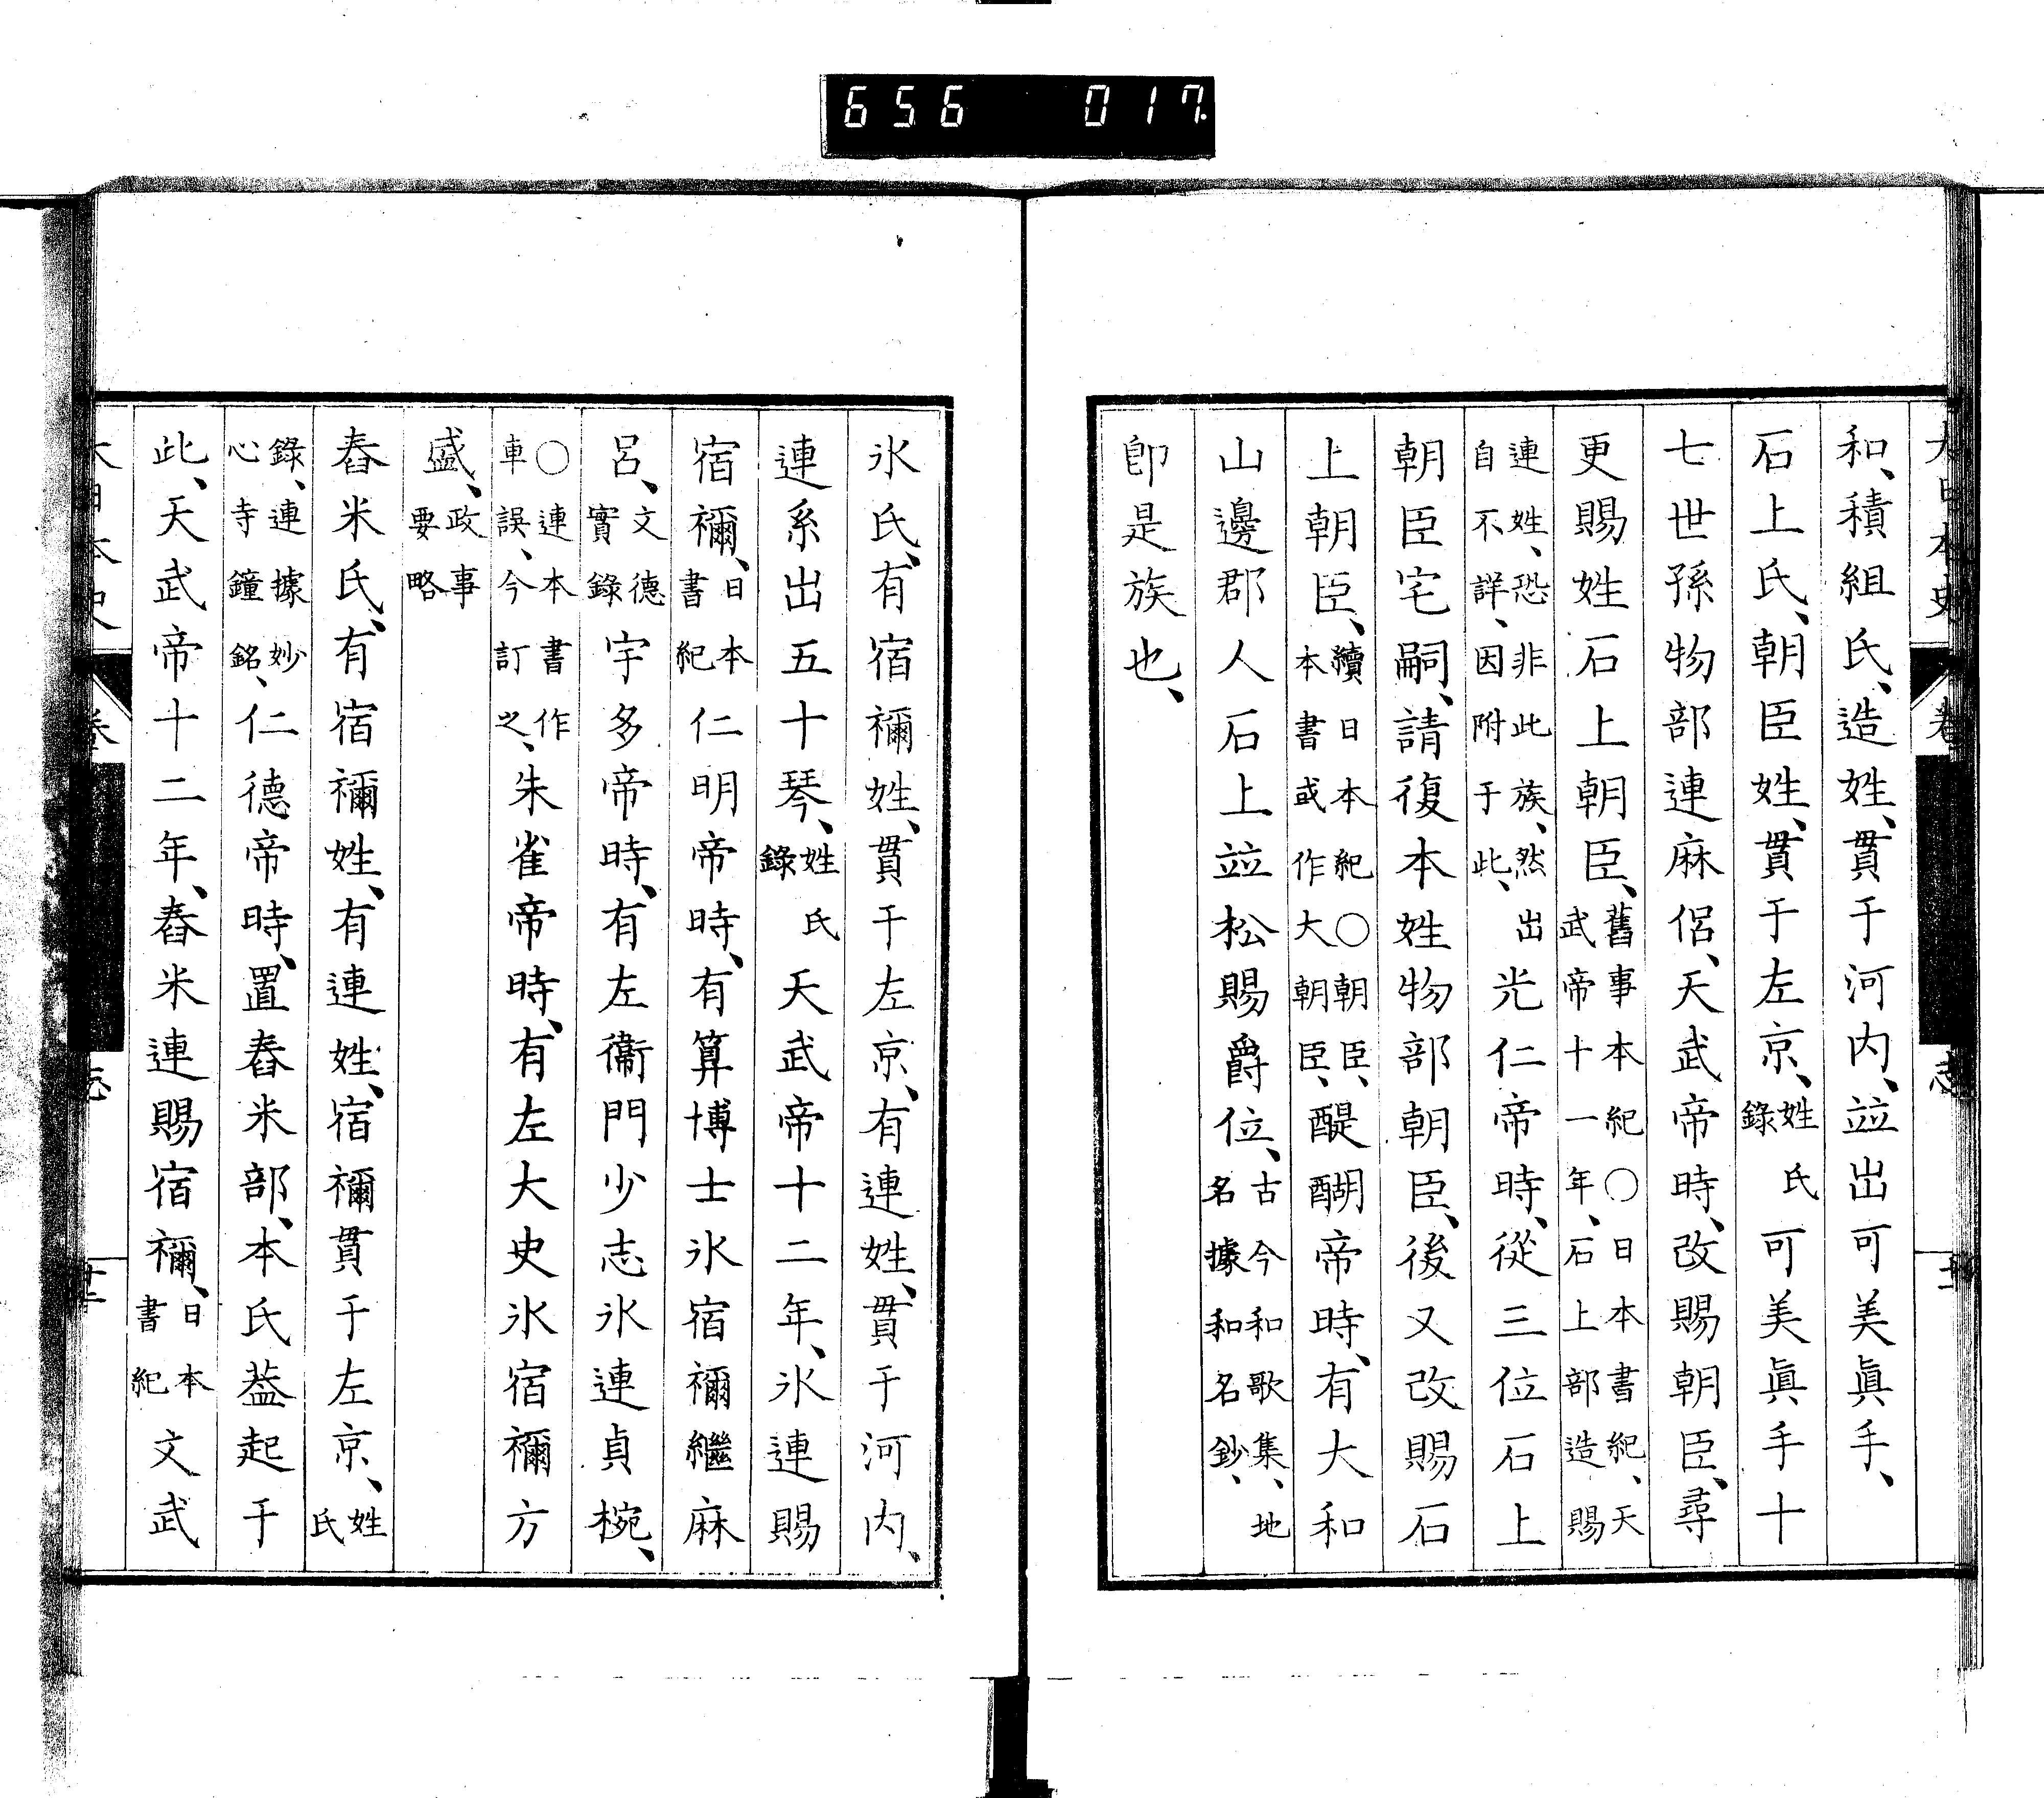 656 017
大日本史 卷 志
和、積組氏、造姓、貫于河内、竝出可美眞手、
石上氏、朝臣姓、貫于左京、姓氏錄可美眞手十
七世孫物部連麻侶、天武帝時、改賜朝臣、尋
更賜姓石上朝臣、舊事本紀〇日本書紀、天武帝十一年、石上部造賜
連姓、恐非此族、然出自不詳、因附于此、光仁帝時、從三位石上
朝臣宅嗣、請復本姓物部朝臣、後又改賜石
上朝臣、續日本紀〇朝臣、本書或作大朝臣、醍醐帝時、有大和
山邊郡人石上竝松賜爵位、古今和歌集、地名據和名鈔、
卽是族也、
氷氏、有宿禰姓、貫于左京、有連姓、貫于河内、
連系出五十琴、姓氏錄天武帝十二年、氷連賜
宿禰、日本書紀仁明帝時、有算博士氷宿禰繼麻
呂、文德實錄宇多帝時、有左衞門少志氷連貞椀、
〇連本書作車誤、今訂之、朱雀帝時、有左大史氷宿禰方
盛、政事要略
舂米氏、有宿禰姓、有連姓、宿禰貫于左京、姓氏
錄、連據妙心寺鐘銘、仁德帝時、置舂米部、本氏葢起于
此、天武帝十二年、舂米連賜宿禰、日本書紀文武
大日本史 卷 志 十二